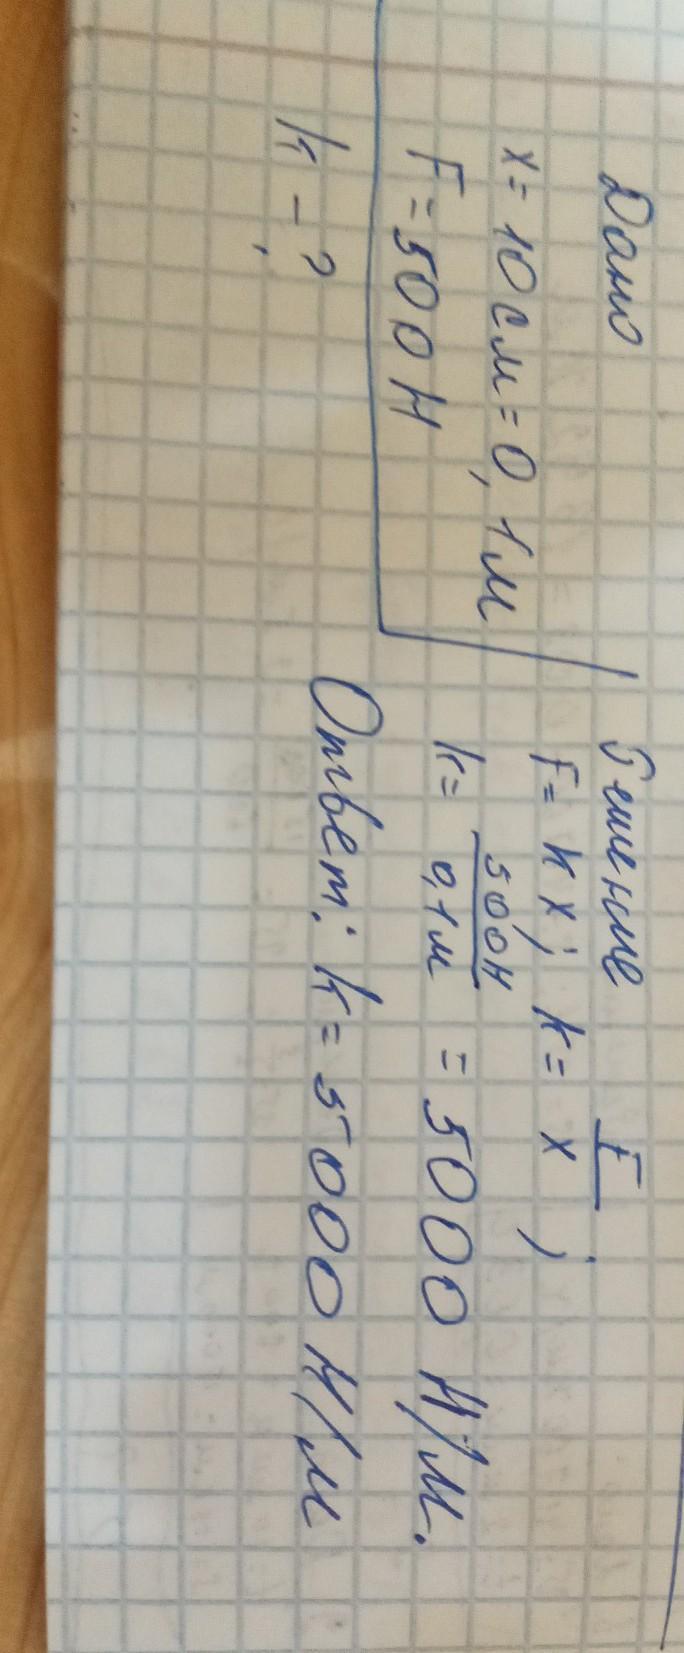 Дано
x = 10 см = 0,1 м
F = 500 Н
k - ?
Решение
F = k x ; k = F / x ;
k = 500 Н / 0,1 м = 5000 Н/м.
Ответ: k = 5000 Н/м